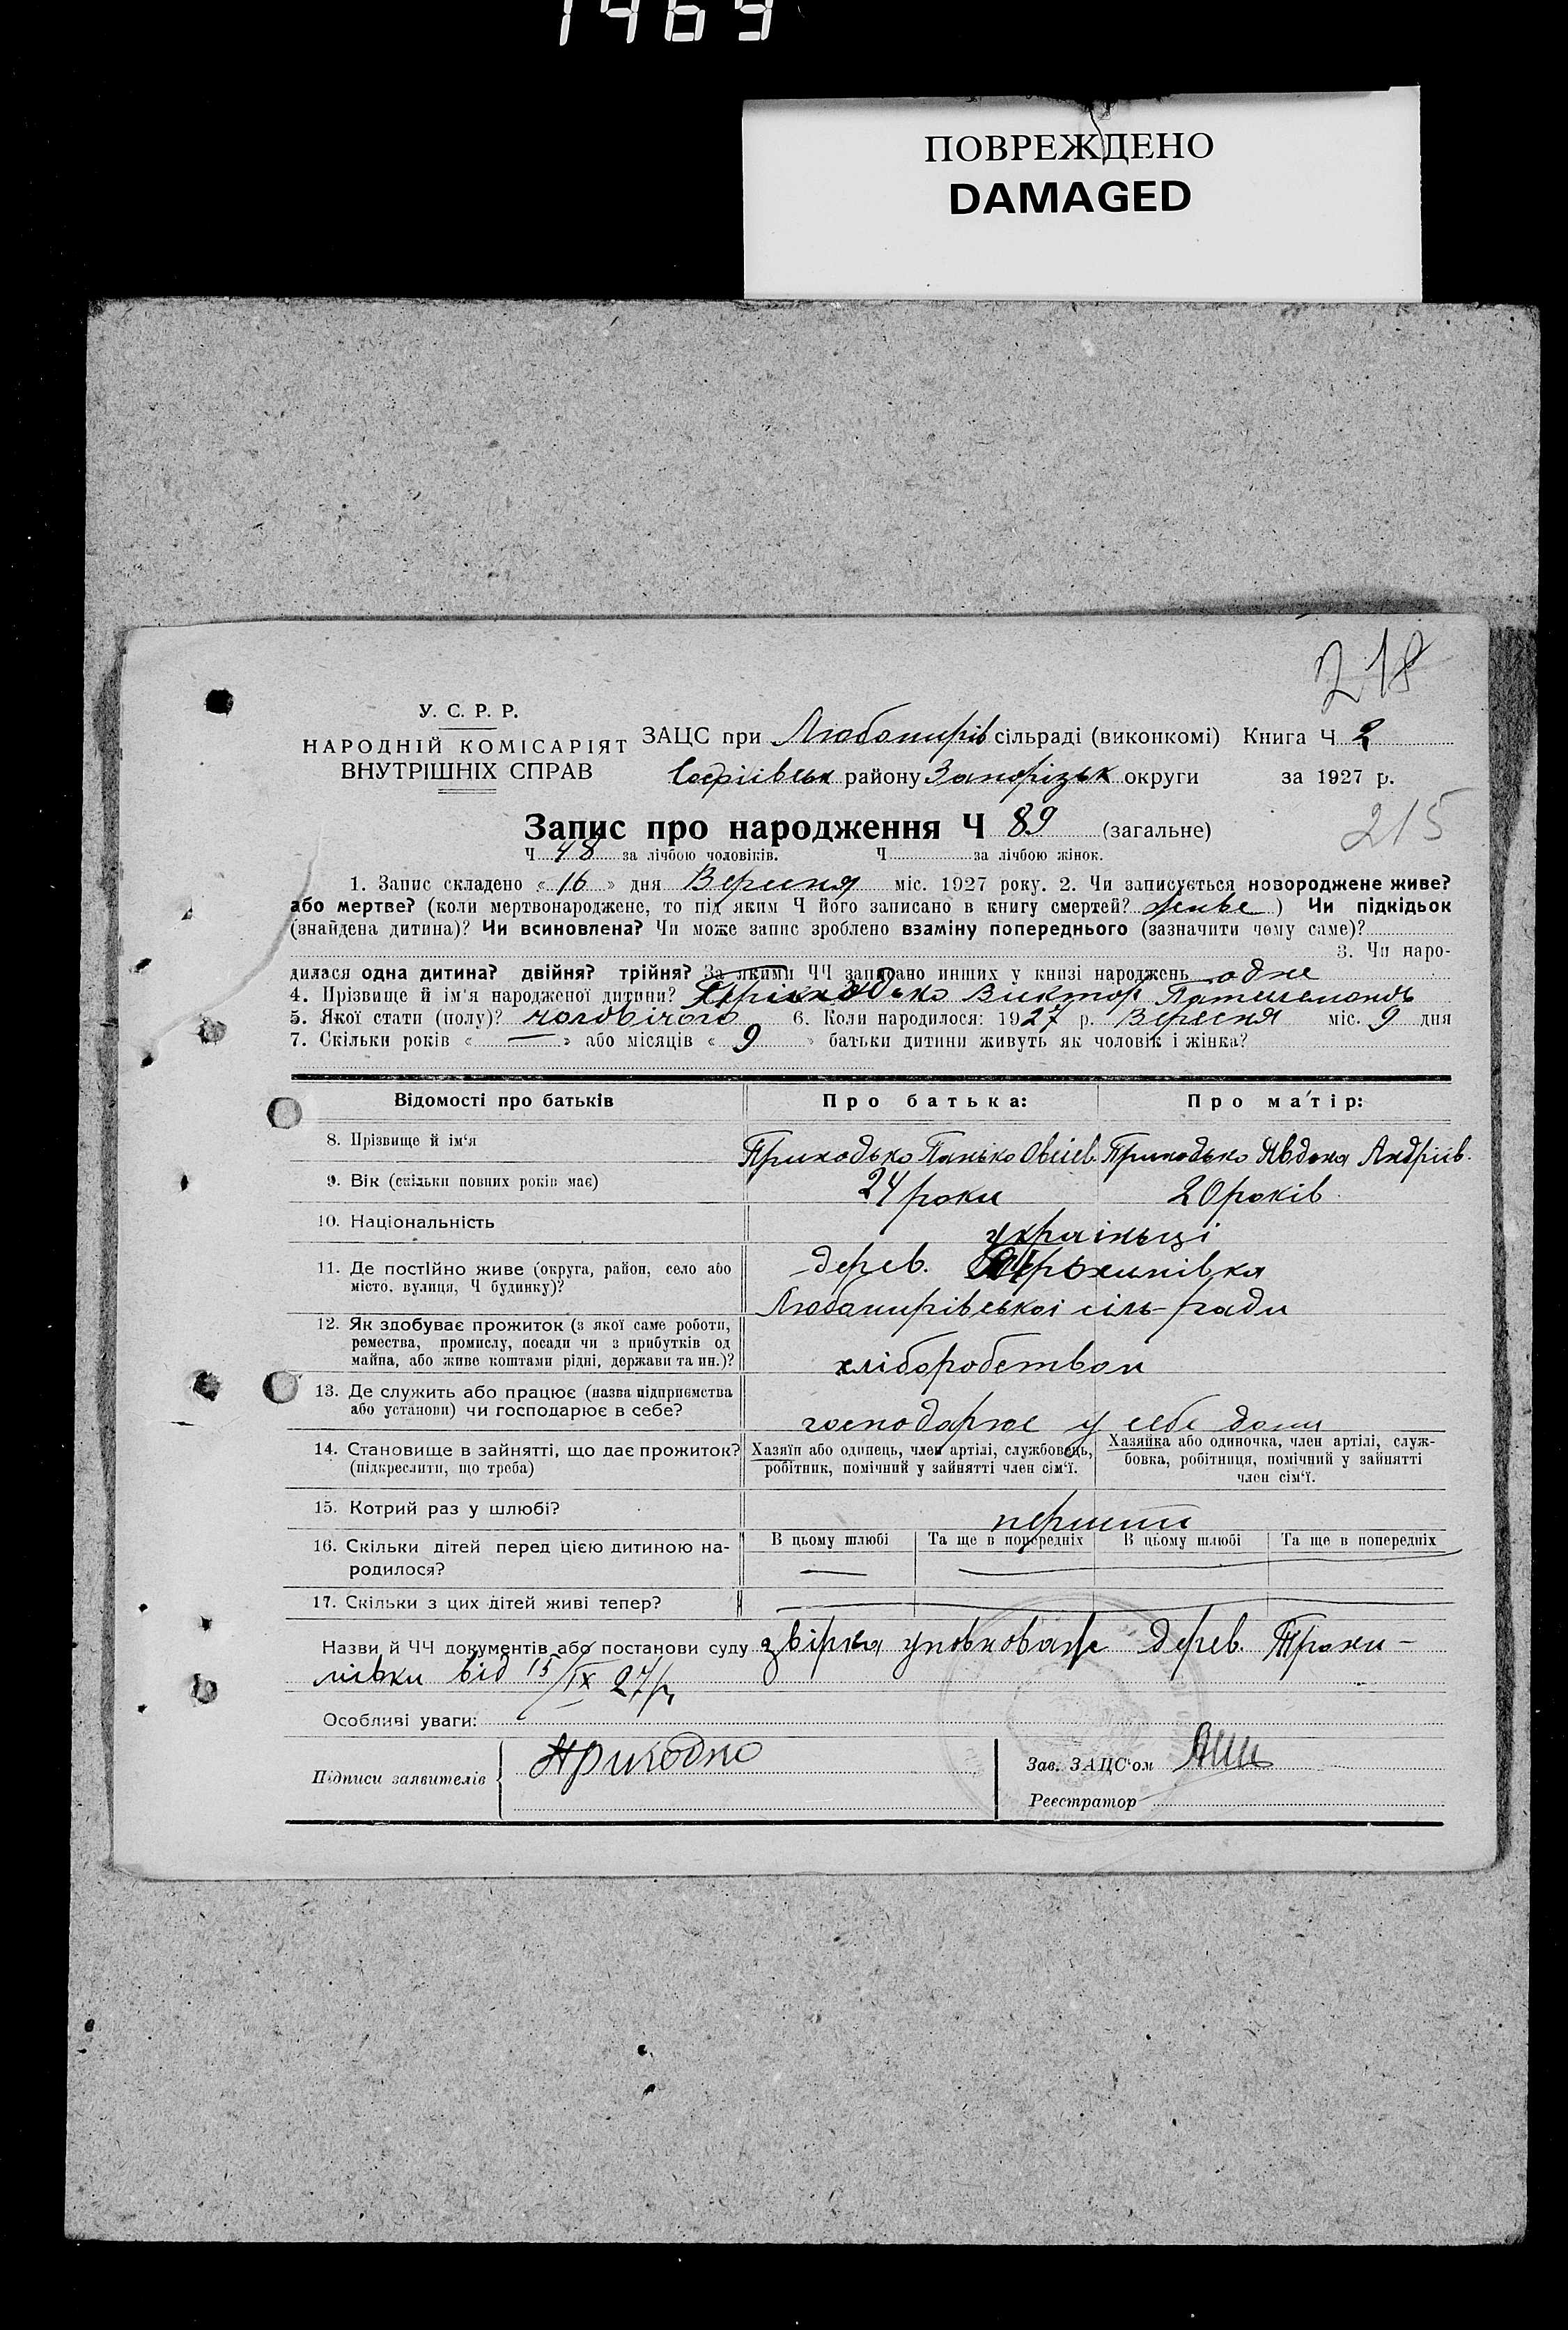 1469
ПОВРЕЖДЕНО
DAMAGED
218
У. С. Р. Р.
НАРОДНІЙ КОМІСАРІЯТ
ВНУТРІШНІХ СПРАВ
ЗАЦС при Любомирів сільраді (виконкомі) Книга Ч 2
Софіівськ району Запорізьк округи за 1927 р.
Запис про народження Ч 89 (загальне)
215
Ч 48 за лічбою чоловіків. Ч за лічбою жінок.
1. Запис складено « 16 » дня Вересня міс. 1927 року. 2. Чи записується новороджене живе?
або мертве? (коли мертвонароджене, то під яким Ч його записано в книгу смертей? живе ) Чи підкідьок
(знайдена дитина)? Чи всиновлена? Чи може запис зроблено взаміну попереднього (зазначити чому саме)?
3. Чи наро-
дилася одна дитина? двійня? трійня? За якими ЧЧ записано инших у книзі народжень одне
4. Прізвище й ім'я народженої дитини? Приходько Виктор
5. Якої стати (полу)? чоловічого 6. Коли народилося: 1927 р. Вересня міс. 9 дня
7. Скільки років « — » або місяців « 9 » батьки дитини живуть як чоловік і жінка?
Відомості про батьків Про батька: Про матір:
8. Прізвище й ім'я Приходько Панько Овсіев. Приходько Явдоха Андріів.
9. Вік (скільки повних років має) 24 роки 20 років
10. Національність українці
11. Де постійно живе (округа, район, село або дерев.
місто, вулиця, Ч будинку)? Любомирівськоі сіль-ради
12. Як здобуває прожиток (з якої саме роботи,
ремества, промислу, посади чи з прибутків од
майна, або живе коштами рідні, держави та ин.)? хліборобством
13. Де служить або працює (назва підприємства
або установи) чи господарює в себе? господарює у себе дома
14. Становище в зайнятті, що дає прожиток? Хазяїн або одинець, член артілі, службовець, Хазяйка або одиночка, член артілі, служ-
(підкреслити, що треба) робітник, помічний у зайнятті член сім'ї. бовка, робітниця, помічний у зайнятті
член сім'ї.
15. Котрий раз у шлюбі? перший
16. Скільки дітей перед цією дитиною на- В цьому шлюбі Та ще в попередніх В цьому шлюбі Та ще в попередніх
родилося? —
17. Скільки з цих дітей живі тепер?
Назви й ЧЧ документів або постанови суду звірка уповноваж дерев. Трохи-
мівки від 15/IX 27 р.
Особливі уваги:
Підписи заявителів Приходко Зав. ЗАЦС'ом
Реєстратор